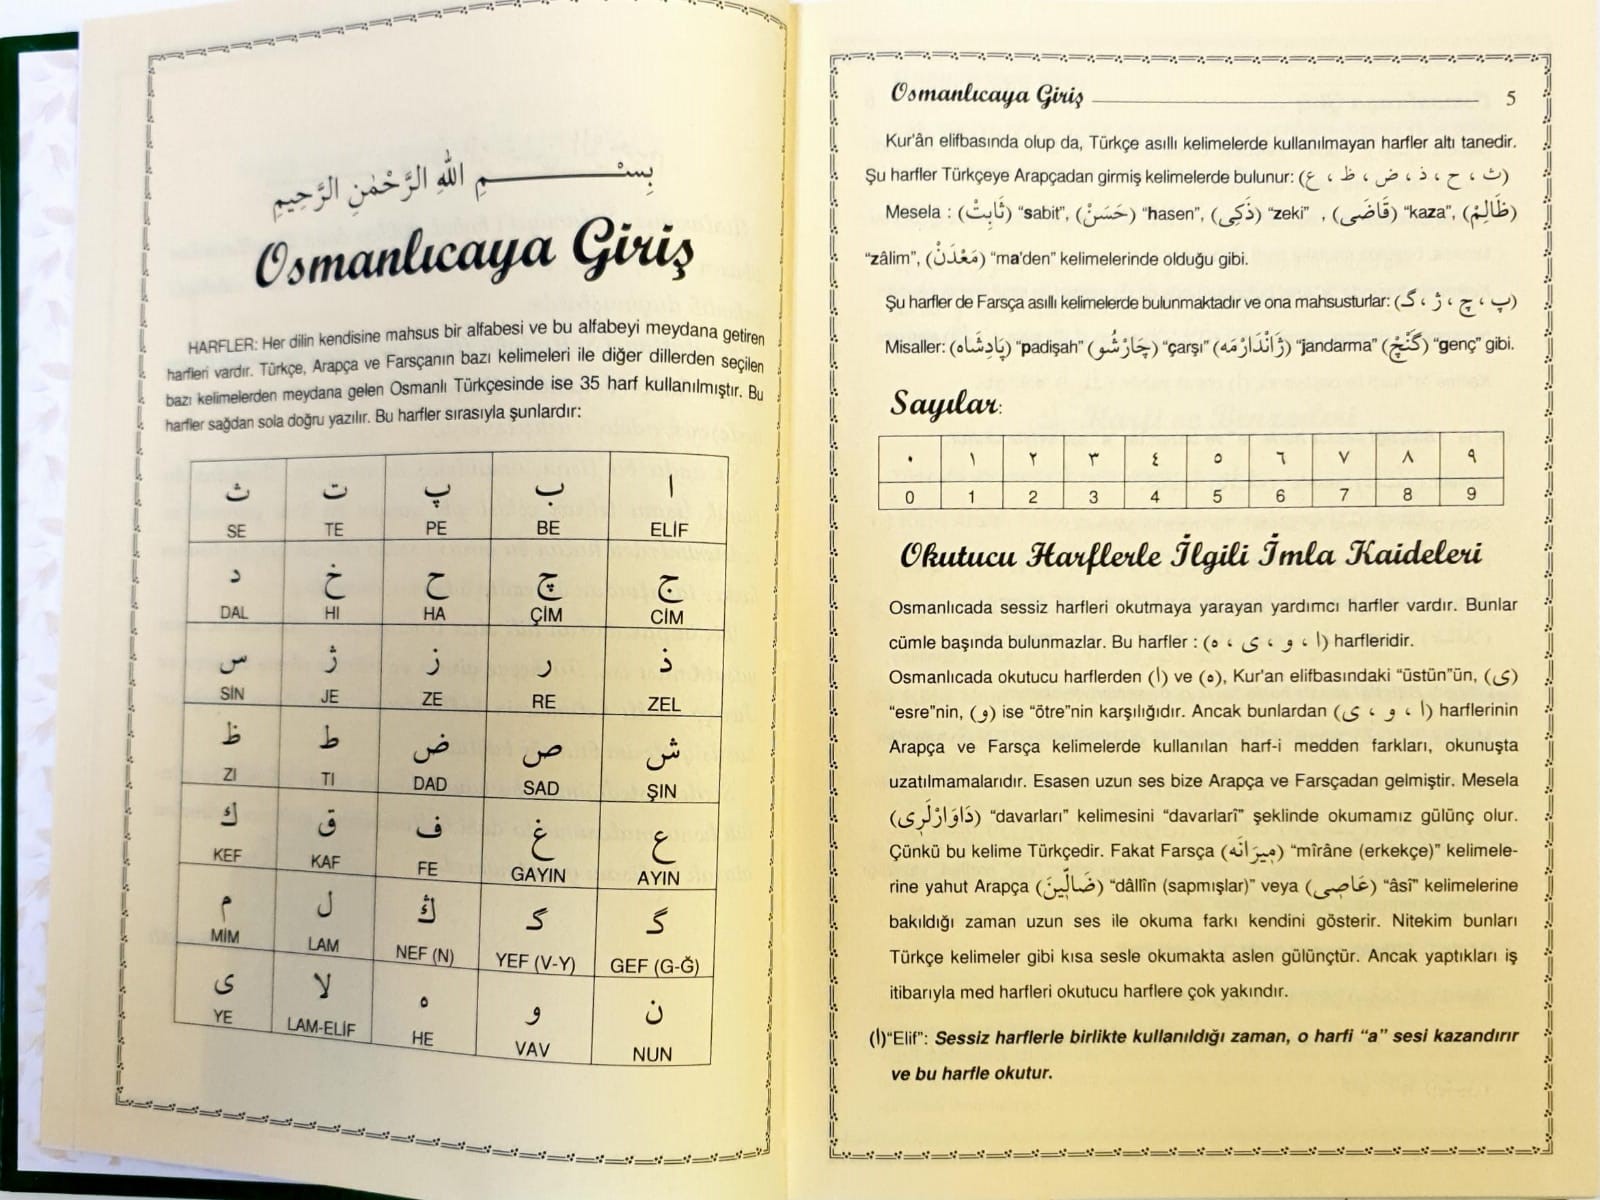 بِسْمِ اللهِ الرَّحْمٰنِ الرَّحِيمِ
Osmanlıcaya Giriş
HARFLER: Her dilin kendisine mahsus bir alfabesi ve bu alfabeyi meydana getiren
harfleri vardır. Türkçe, Arapça ve Farsçanın bazı kelimeleri ile diğer dillerden seçilen
bazı kelimelerden meydana gelen Osmanlı Türkçesinde ise 35 harf kullanılmıştır. Bu
harfler sağdan sola doğru yazılır. Bu harfler sırasıyla şunlardır:
ث ت پ ب ا
SE TE PE BE ELİF
د خ ح چ ج
DAL HI HA ÇİM CİM
س ژ ز ر ذ
SİN JE ZE RE ZEL
ظ ط ض ص ش
ZI TI DAD SAD ŞIN
ك ق ف غ ع
KEF KAF FE GAYIN AYIN
م ل ڭ گ گ
MİM LAM NEF (N) YEF (V-Y) GEF (G-Ğ)
ى لا ه و ن
YE LAM-ELİF HE VAV NUN
Osmanlıcaya Giriş 5
Kur'ân elifbasında olup da, Türkçe asıllı kelimelerde kullanılmayan harfler altı tanedir.
Şu harfler Türkçeye Arapçadan girmiş kelimelerde bulunur: (ث ، ح ، ذ ، ض ، ظ ، ع)
Mesela : (ثَابِتْ) “sabit”, (حَسَنْ) “hasen”, (ذَكِى) “zeki” , (قَاضَى) “kaza”, (ظَالِمْ)
“zâlim”, (مَعْدَنْ) “ma'den” kelimelerinde olduğu gibi.
Şu harfler de Farsça asıllı kelimelerde bulunmaktadır ve ona mahsusturlar: (پ ، چ ، ژ ، گ)
Misaller: (پَادِشَاه) “padişah” (چَارْشُو) “çarşı” (ژَانْدَارْمَه) “jandarma” (گَنْچْ) “genç” gibi.
Sayılar:
٠ ١ ٢ ٣ ٤ ٥ ٦ ٧ ٨ ٩
0 1 2 3 4 5 6 7 8 9
Okutucu Harflerle İlgili İmla Kaideleri
Osmanlıcada sessiz harfleri okutmaya yarayan yardımcı harfler vardır. Bunlar
cümle başında bulunmazlar. Bu harfler : (ا ، و ، ى ، ه) harfleridir.
Osmanlıcada okutucu harflerden (ا) ve (ه), Kur'an elifbasındaki “üstün”ün, (ى)
“esre”nin, (و) ise “ötre”nin karşılığıdır. Ancak bunlardan (ا ، و ، ى) harflerinin
Arapça ve Farsça kelimelerde kullanılan harf-i medden farkları, okunuşta
uzatılmamalarıdır. Esasen uzun ses bize Arapça ve Farsçadan gelmiştir. Mesela
(دَاوَارْلَرِى) “davarları” kelimesini “davarlarî” şeklinde okumamız gülünç olur.
Çünkü bu kelime Türkçedir. Fakat Farsça (مِيرَانَه) “mîrâne (erkekçe)” kelimele-
rine yahut Arapça (ضَالِّينَ) “dâllîn (sapmışlar)” veya (عَاصِى) “âsî” kelimelerine
bakıldığı zaman uzun ses ile okuma farkı kendini gösterir. Nitekim bunları
Türkçe kelimeler gibi kısa sesle okumakta aslen gülünçtür. Ancak yaptıkları iş
itibarıyla med harfleri okutucu harflere çok yakındır.
(ا)“Elif”: Sessiz harflerle birlikte kullanıldığı zaman, o harfi “a” sesi kazandırır
ve bu harfle okutur.